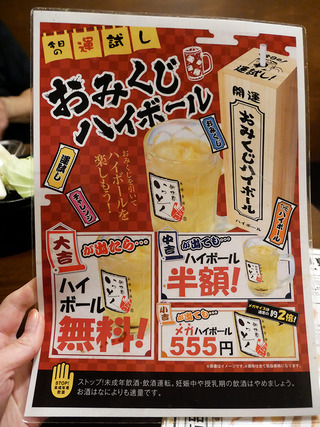 今日の運試し
おみくじ
ハイボール
運試し!
開運
おみくじハイボール
ハイボール
おみくじ
ハイボール
運試し
チャレンジ
おみくじを引いて
ハイボールを
楽しもう!
大吉
が出たら…
ハイ
ボール
無料!
中吉
が出ても…
ハイボール
半額!
小吉
が出ても…
メガハイボール
555円
メガサイズは
通常の約2倍!
STOP!
未成年者
飲酒
ストップ!未成年飲酒・飲酒運転。妊娠中や授乳期の飲酒はやめましょう。
お酒はなによりも適量です。